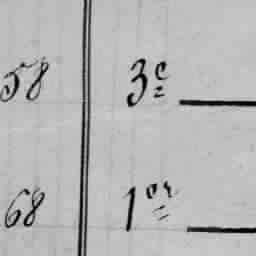 58 3e
68 1er